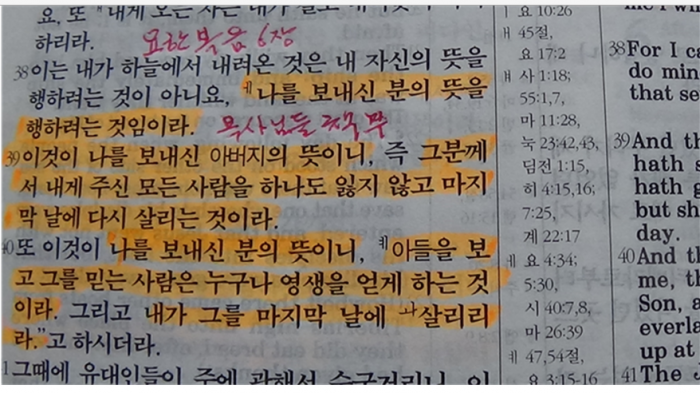 요, 또 "내게 오는 자는 내가 결코 내어쫓지 아니
하리라. 요한복음 6장
38이는 내가 하늘에서 내려온 것은 내 자신의 뜻을
행하려는 것이 아니요, ㅔ나를 보내신 분의 뜻을
행하려는 것임이라. 목사님들
39이것이 나를 보내신 아버지의 뜻이니, 즉 그분께
서 내게 주신 모든 사람을 하나도 잃지 않고 마지
막 날에 다시 살리는 것이라.
40또 이것이 나를 보내신 분의 뜻이니, ㅖ아들을 보
고 그를 믿는 사람은 누구나 영생을 얻게 하는 것
이라. 그리고 내가 그를 마지막 날에 ㅘ살리리
라."고 하시더라.
1그때에 유대인들이 주에 관해서 수군거리니, 이
요 10:26
ㅐ 45절,
요 17:2
ㅒ 사 1:18;
55:1,7,
마 11:28,
눅 23:42,43,
딤전 1:15,
히 4:15,16;
7:25,
계 22:17
ㅔ 요 4:34;
5:30,
시 40:7,8,
마 26:39
ㅖ 47,54절,
요 3:15-16
38For I ca
do min
that se
39And th
hath s
hath g
but sh
day.
40And th
me, th
Son, a
everla
up at
41The J